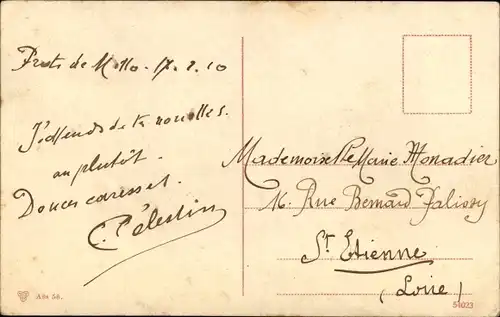 Prats de Mollo. 17. 2. 10
J'attends de tes nouvelles.
au plutôt.
Douces caresses.
C. Célestin
Mademoiselle Marie Monadier
14. Rue Bernard Palissy
St Etienne
(Loire)
Als 56.
54023